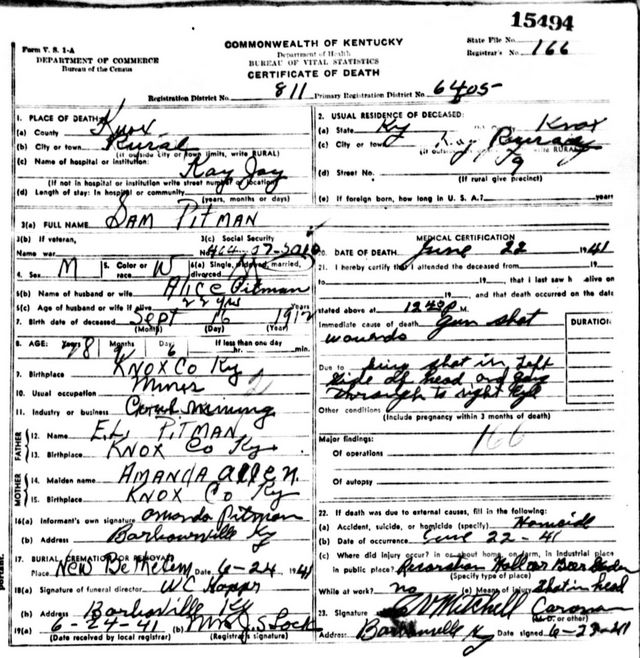 15494
Form V. S. 1-A
COMMONWEALTH OF KENTUCKY
State File No.
DEPARTMENT OF COMMERCE
Department of Health
Registrar's No. 166
Bureau of the Census
BUREAU OF VITAL STATISTICS
CERTIFICATE OF DEATH
Registration District No. 811 Primary Registration District No. 6405
1. PLACE OF DEATH
(a) County Knox
(b) City or town Rural
(If outside city or town limits, write RURAL)
(c) Name of hospital or institution: Kay Jay
(If not in hospital or institution write street number or location)
(d) Length of stay: In hospital or community
(years, months or days)
2. USUAL RESIDENCE OF DECEASED:
(a) State Ky Knox
(c) City or town
(d) Street No. 9
(If rural give precinct)
(e) If foreign born, how long in U. S. A.? years
3(a) FULL NAME SAM PITMAN
3(b) If veteran,
Name war
3(c) Social Security
No.
4. Sex M
5. Color or race W
6(a) Single, widowed, married, divorced
6(b) Name of husband or wife Alice Pitman
6(c) Age of husband or wife if alive 22 yrs Years
7. Birth date of deceased Sept 16 1912
(Month) (Day) (Year)
8. AGE: Years 28 9 Days 6 If less than one day
hr. min.
9. Birthplace KNOX Co Ky
10. Usual occupation Miner
11. Industry or business Coal mining
FATHER
12. Name E.L. PITMAN
13. Birthplace KNOX Co Ky
MOTHER
14. Maiden name AMANDA Allen
15. Birthplace KNOX Co Ky
16(a) Informant's own signature Amanda Pitman
(b) Address Barbourville Ky
17. BURIAL, CREMATION OR REMOVAL
Place New Bethelem Date 6-24 1941
18(a) Signature of funeral director W C Hopper
(b) Address Barbsville Ky
19(a) 6-24-41 (b) Mrs J. S. Lock
(Date received by local registrar) (Registrar's signature)
MEDICAL CERTIFICATION
20. DATE OF DEATH June 22 1941
21. I hereby certify that I attended the deceased from 19
19 , that I last saw h alive on
19 and that death occurred on the date
stated above at 12 40 P M.
Immediate cause of death Gun shot
wounds
DURATION
Due to being shot in left
side of head and
through to right Eye
Other conditions
(Include pregnancy within 3 months of death)
Major findings: 166
Of operations
Of autopsy
22. If death was due to external causes, fill in the following:
(a) Accident, suicide, or homicide (specify) Homicide
(b) Date of occurrence June 22-41
(c) Where did injury occur? in or about home, on farm, in industrial place
in public place?
(Specify type of place)
While at work? no (e) Means of injury Shot in head
23. Signature Mitchell Coroner
(M. D. or other)
Address Barbourville Ky Date signed 6-23-41
portant.